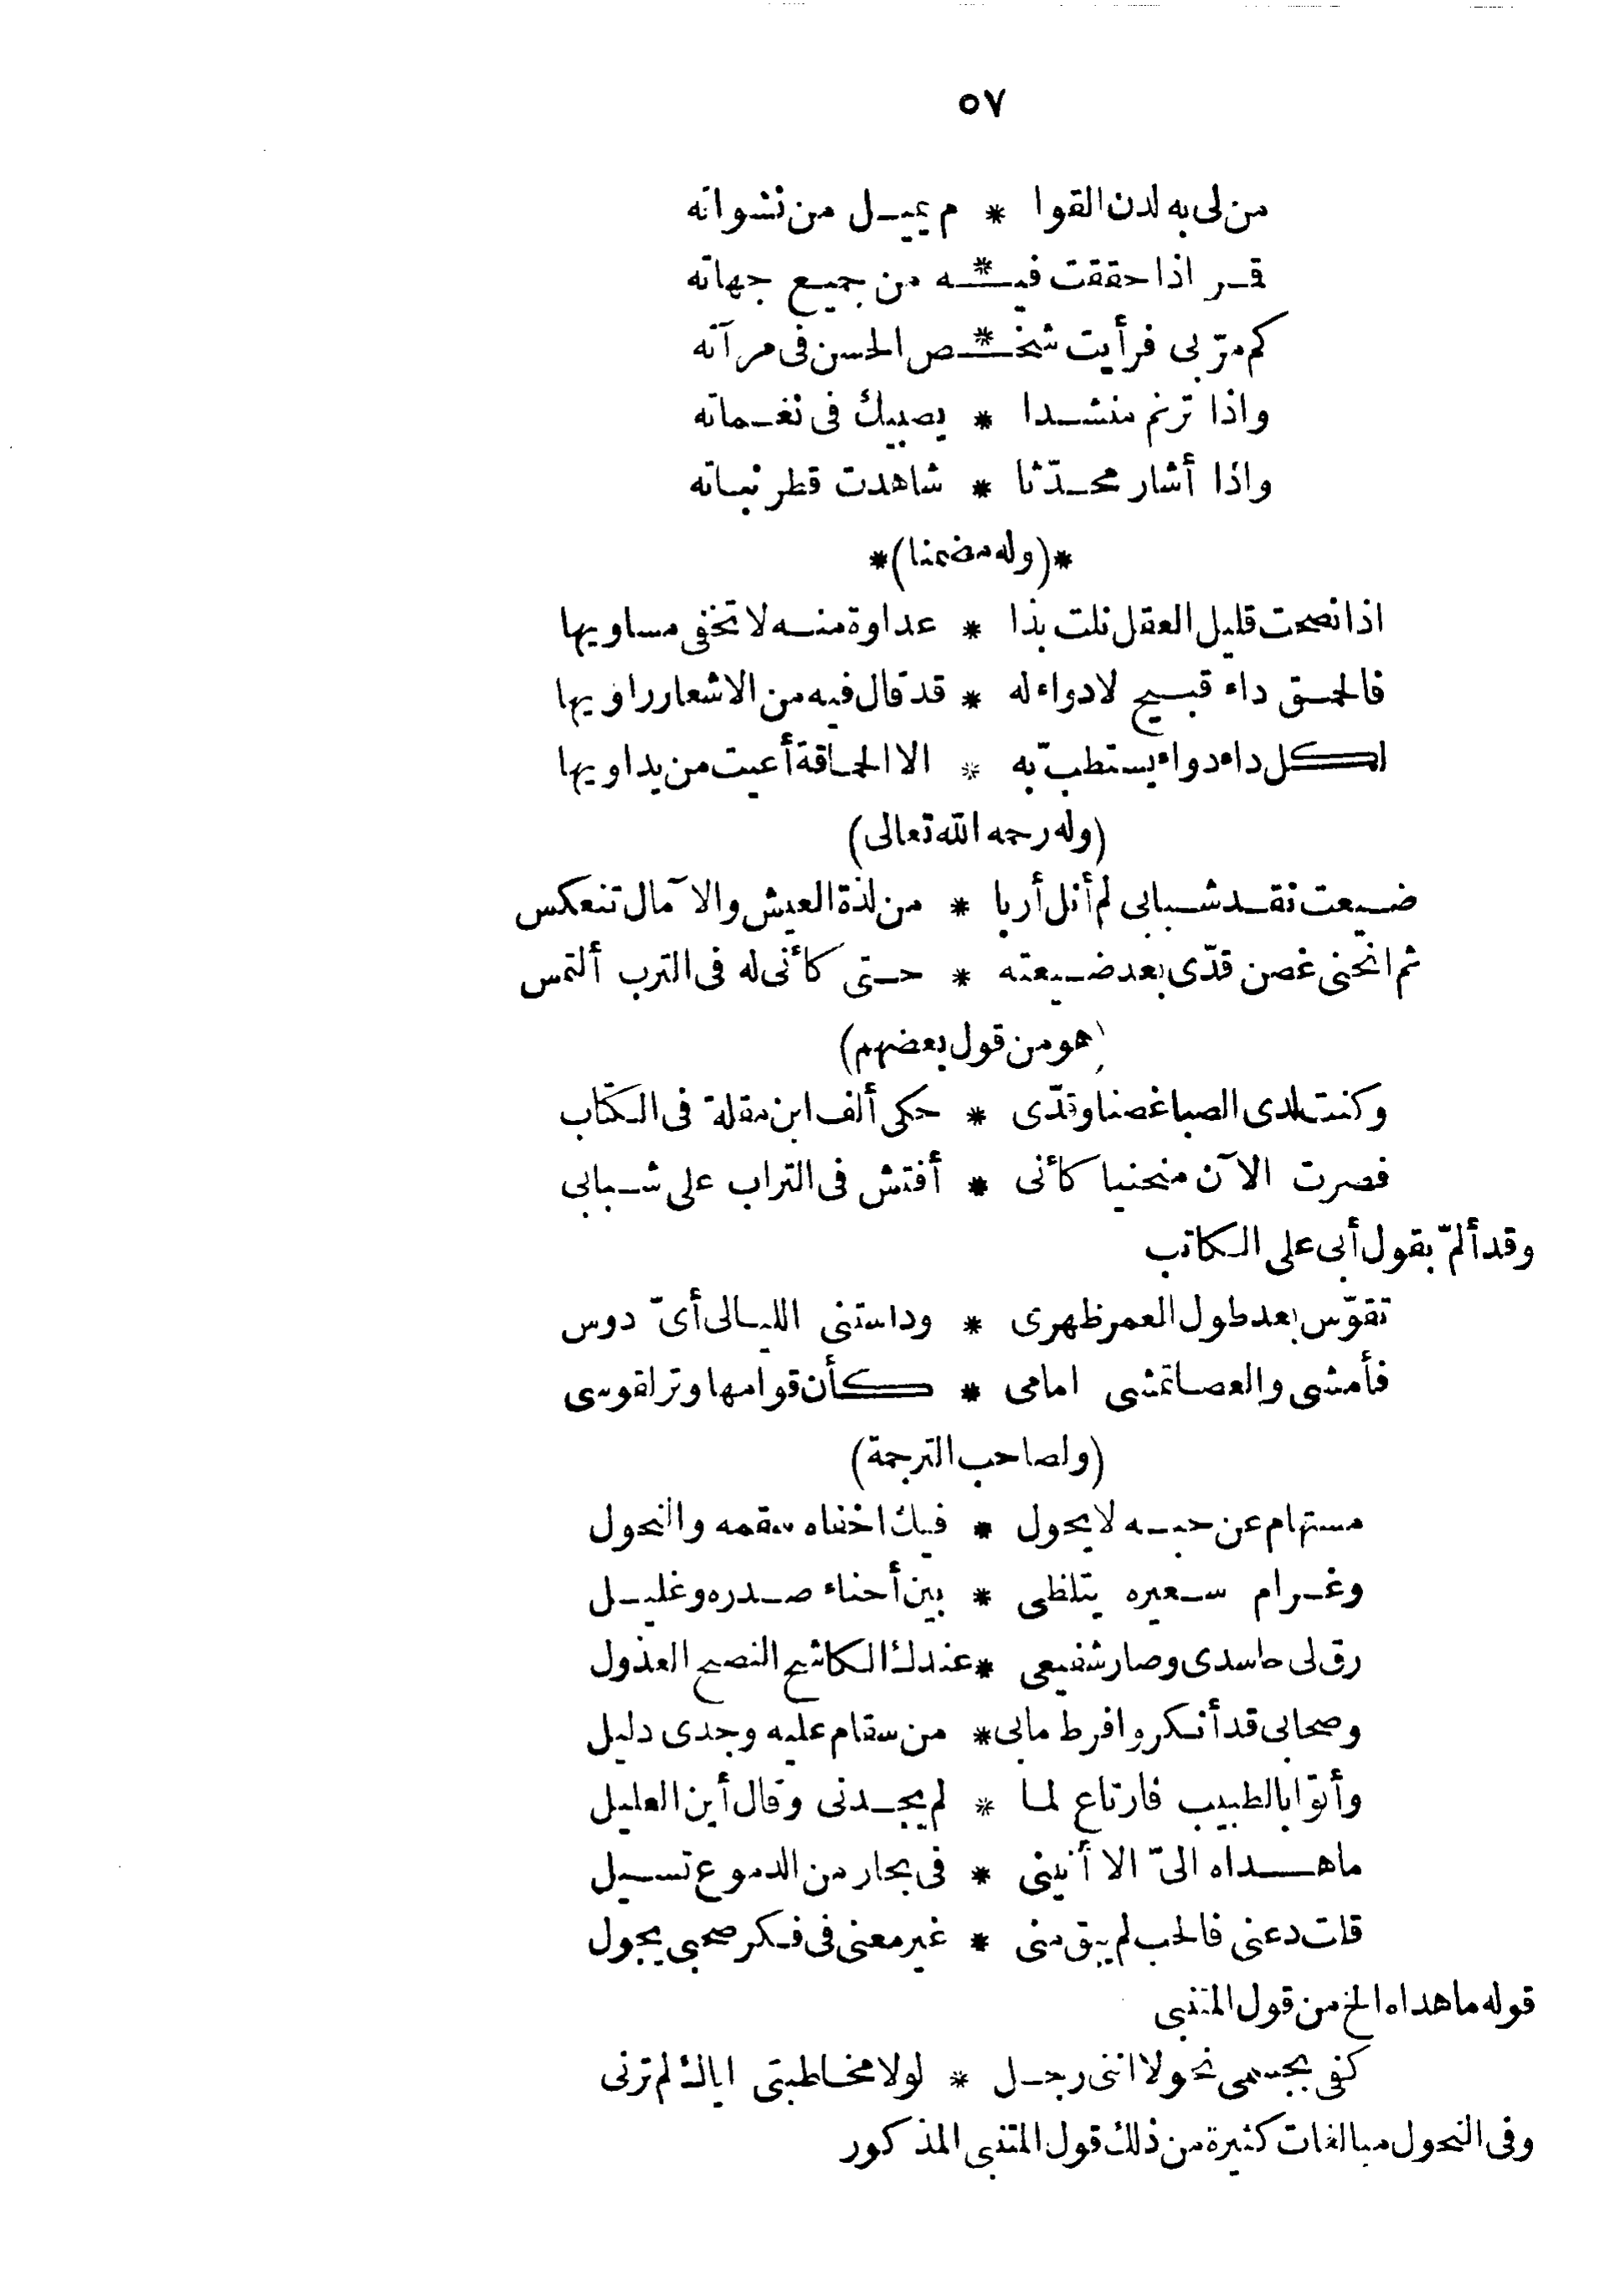 ٥٧
من لى به لدن القوا * م يميـل من نشواته
قـر اذا حققت فيـ*ـه من جميع جهاته
كم مرّ بى فرأيت شخـ*ـص الحسن فى مرآته
واذا ترنم منشـدا * يصبيك فى نغـماته
واذا أشار محـدّثا * شاهدت قطر نباته
*(وله مضمنا)*
اذا نصحت قليل العقل نلت بذا * عداوة منـه لا تخفى مساويها
فالحمـق داء قبـيح لا دواء له * قد قال فيه من الاشعار راويها
لكل داء دواء يستطبّ به * الا الحماقة أعيت من يداويها
(وله رحمه الله تعالى)
ضـيعت نقـد شـبابى لم أنل أربا * من لذة العيش والآمال تنعكس
ثم انحنى غصن قدّى بعد ضـيعته * حـتى كأنى له فى الترب ألتمس
(هو من قول بعضهم)
وكنت لدى الصبا غصنا وقدّى * حكى ألف ابن مقلة فى الكتاب
فصرت الآن منحنيا كأنى * أفتش فى التراب على شـبابى
وقد ألمّ بقول أبى على الكاتب
تقوّس بعد طول العمر ظهرى * وداستنى الليالى أىّ دوس
فأمشى والعصا تمشى امامى * كأن قوامها وتر لقوسى
(ولصاحب الترجمة)
مستهام عن حبـه لا يحول * فيك اخفاه سقمه والنحول
وغـرام سـعيره يتلظى * بين أحناء صـدره وغليـل
رق لى حاسدى وصار شفيعى * عندك الكاشح النصيح العذول
وصحابى قد أنكروا فرط مابى * من سقام عليه وجدى دليل
وأتوا بالطبيب فارتاع لما * لم يجـدنى وقال أين العليل
ما هـداه الىّ الا أنينى * فى بحار من الدموع تسـيل
قلت دعنى فالحب لم يبق منى * غير معنى فى فكر صحبى يجول
قوله ما هداه الخ من قول المتنبى
كفى بجسمى نحولا اننى رجـل * لولا مخاطبتى اياك لم ترنى
وفى النحول مبالغات كثيرة من ذلك قول المتنبى المذكور